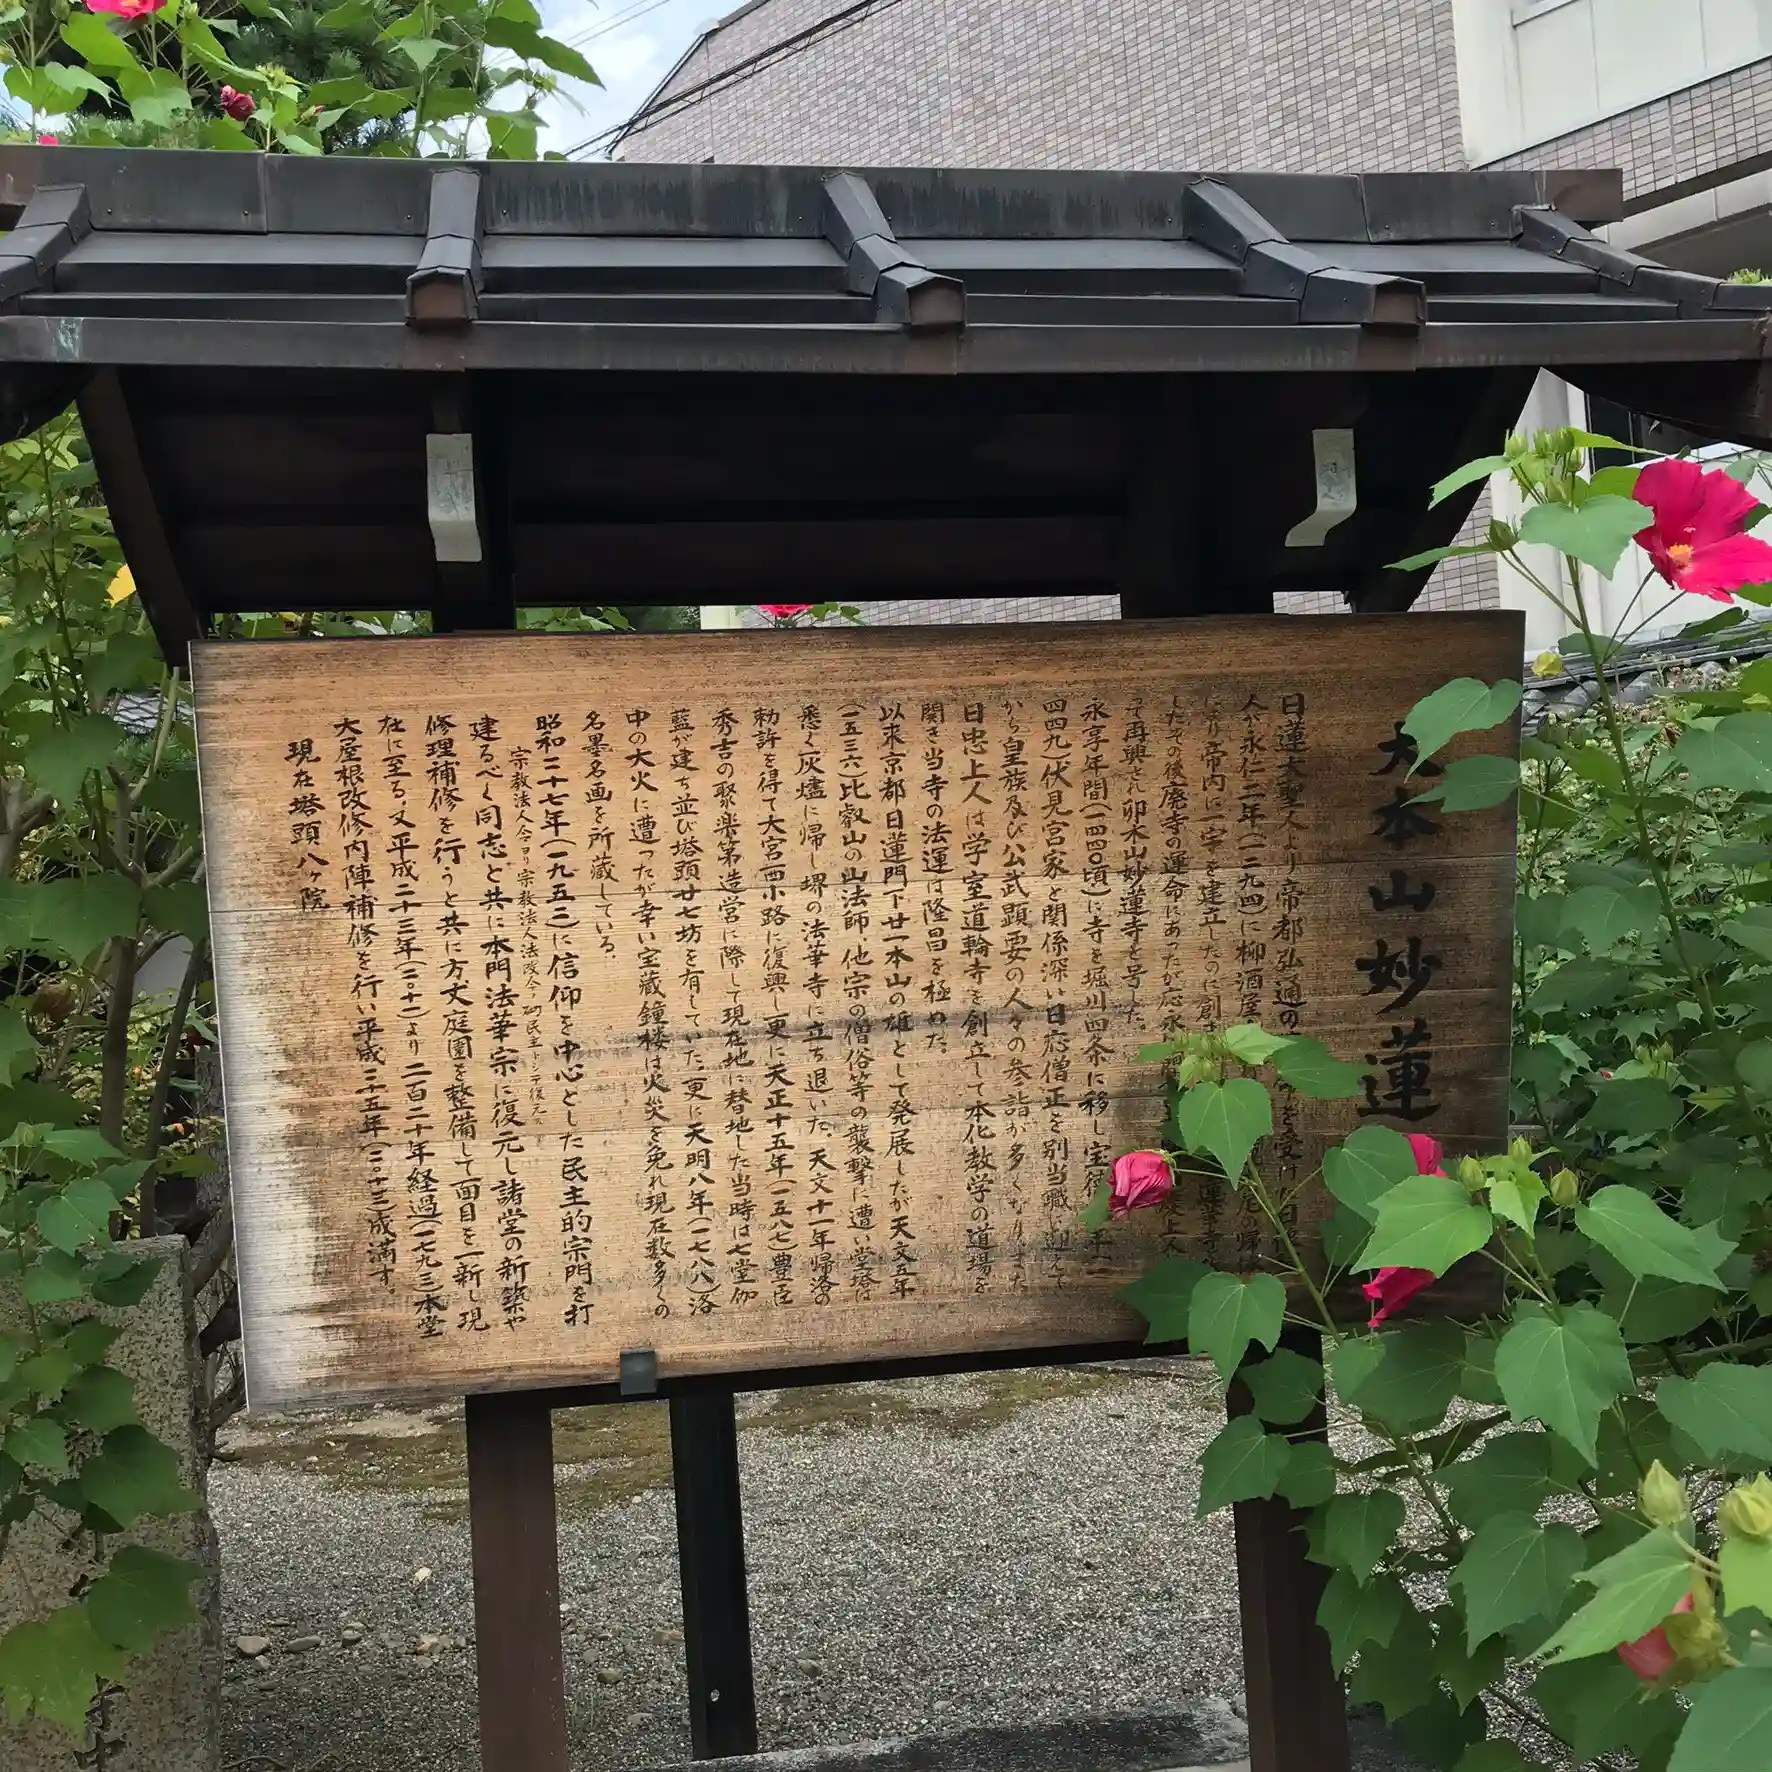 大本山妙蓮
日蓮大聖人より帝都弘通の
人が永仁二年(一二九四)に柳酒屋
により帝内に一宇を建立したのに創ま
したその後廃寺の運命にあったが応永
って再興され卯木山妙蓮寺と号した。
永享年間(一四四〇頃)に寺を堀川四条に移し宝徳
四四九)伏見宮家と関係深い日応僧正を別当職に迎えて
から皇族及び公武顕要の人々の参詣が多くなりまた
日忠上人は学室道輪寺を創立して本化教学の道場を
開き当寺の法運は隆昌を極めた。
以来京都日蓮門下廿一本山の雄として発展したが天文五年
(一五三六)比叡山の山法師、他宗の僧俗等の襲撃に遭い堂塔は
悉く灰燼に帰し堺の法華寺に立ち退いた。天文十一年帰洛の
勅許を得て大宮西小路に復興し更に天正十五年(一五八七)豊臣
秀吉の聚楽第造営に際して現在地に替地した当時は七堂伽
藍が建ち並び塔頭廿七坊を有していた。更に天明八年(一七八八)洛
中の大火に遭ったが幸い宝蔵鐘楼は火災を免れ現在数多くの
名墨名画を所蔵している。
昭和二十七年(一九五二)に信仰を中心とした民主的宗門を打
宗教法人令ヨリ宗教法人法改令ノ砌民主トシテ復元ス
建るべく同志と共に本門法華宗に復元し諸堂の新築や
修理補修を行うと共に方丈庭園を整備して面目を一新し現
在に至る。又平成二十三年(二〇十一)より二百二十年経過(一七九三)本堂
大屋根改修内陣補修を行い平成二五年(二〇十三)成満す。
現在塔頭八ヶ院